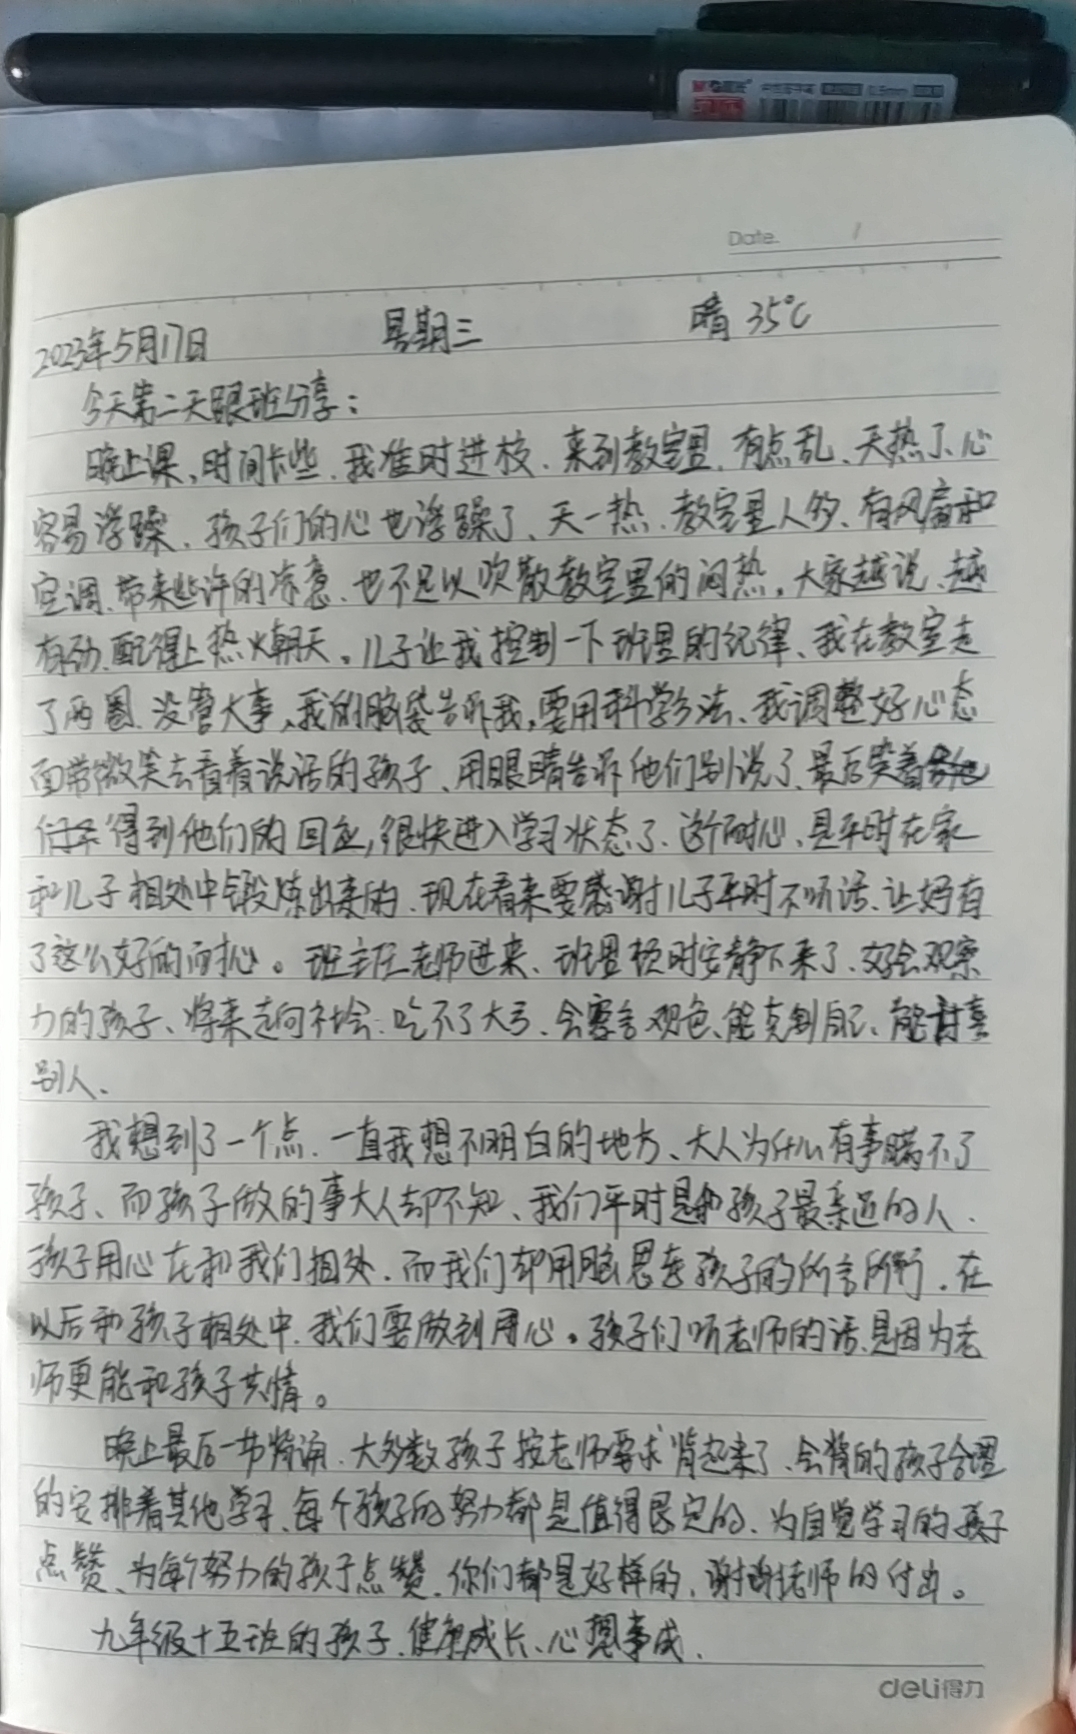 M&G晨光 中性签字笔 0.5mm
Date.
2023年5月17日 星期三 晴 35℃
今天第二天跟班分享：
晚上课,时间长些、我准时进校、来到教室里、有点乱、天热了、心
容易浮躁、孩子们的心也浮躁了、天一热、教室里人多、有风扇和
空调、带来些许的凉意、也不足以吹散教室里的闷热。大家越说、越
有劲、配得上热火朝天。儿子让我控制一下班里的纪律、我在教室走
了两圈、没管大事、我的脑袋告诉我,要用科学方法、我调整好心态
面带微笑去看着说话的孩子、用眼睛告诉他们别说了、最后笑着
得到他们的回应,很快进入学习状态了、这个耐心、是平时在家
和儿子相处中锻炼出来的、现在看来要感谢儿子平时不听话、让妈有
了这么好的耐心。班主任老师进来、班里顿时安静下来了、好会观察
力的孩子、将来走向社会、吃不了大亏、会察言观色、能克制自己、能讨喜
别人、
我想到了一个点、一直我想不明白的地方、大人为什么有事瞒不了
孩子、而孩子做的事大人却不知、我们平时是和孩子最亲近的人、
孩子用心在和我们相处、而我们却用脑思考孩子的所言所行、在
以后和孩子相处中、我们要做到用心。孩子们听老师的话、是因为老
师更能和孩子共情。
晚上最后一节背诵、大多数孩子按老师要求背起来了、会背的孩子合理
的安排着其他学习、每个孩子的努力都是值得肯定的、为自觉学习的孩子
点赞、为每个努力的孩子点赞、你们都是好样的、谢谢老师的付出。
九年级十五班的孩子、健康成长、心想事成、
deli得力